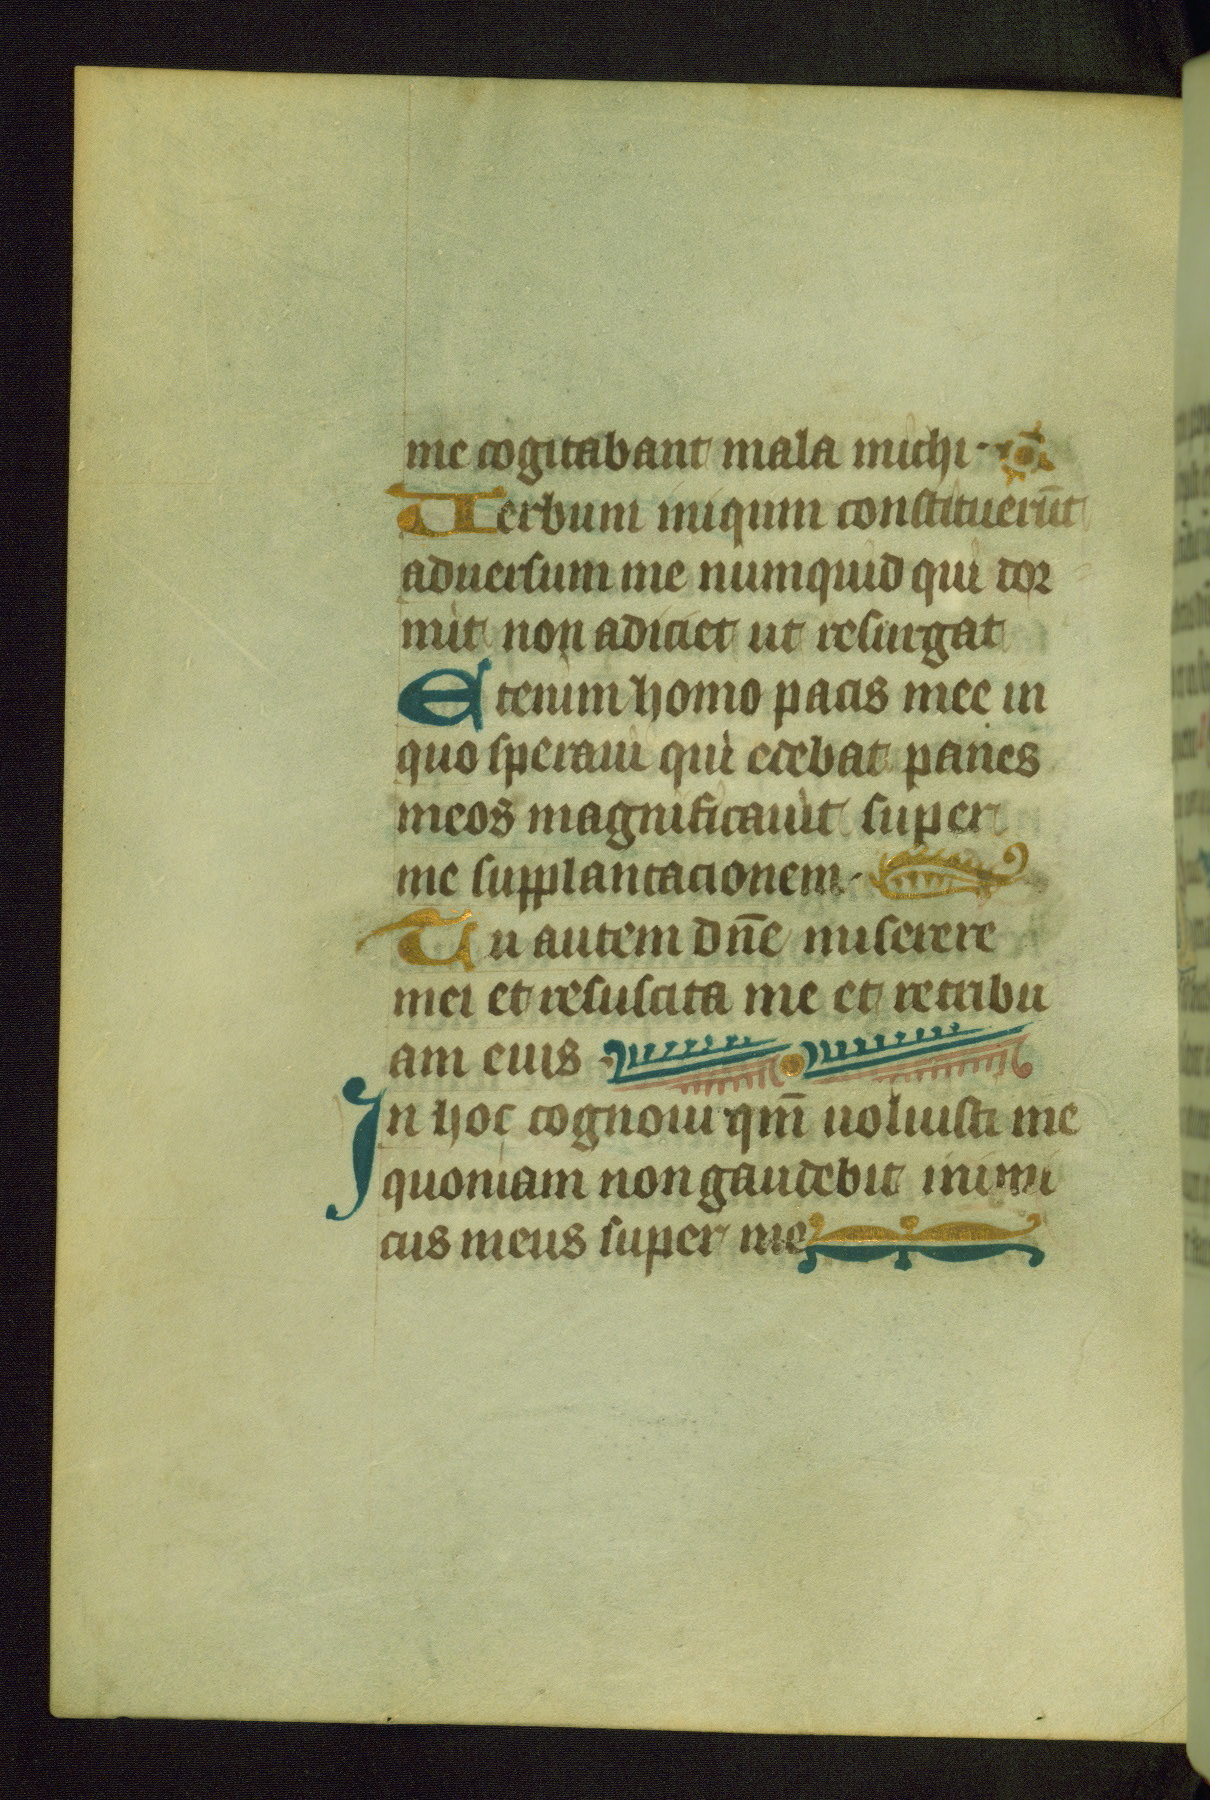 me cogitabant mala michi·
Uerbum iniqum constituerūt
aduersum me numquid qui dor
mit non adiciet ut resurgat
Etenim homo pacis mee in
quo speraui qui edebat panes
meos magnificauit super
me supplantacionem·
Tu autem dn̄e miserere
mei et resuscita me et retribu
am euis
In hoc cognoui qm̄ uoluisti me
quoniam non gaudebit inimi
cus meus super me